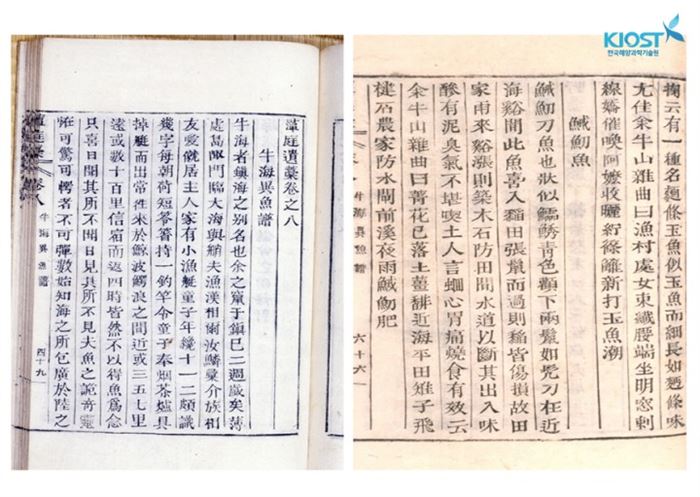 KIOST
한국해양과학기술원
藫庭遺藁卷之八
牛海異魚譜
牛海者鎭海之別名也余之竄于鎭已二週歲矣薄
處島陬門臨大海與艄夫漁漢相爾汝鱗彙介族相
友愛僦居主人家有小漁艇童子年纔十一二頗識
幾字每朝荷短笭箵持一釣竿令童子奉烟茶爐具
掉艇而出常往來於鯨波鰐浪之間近或三五七里
遠或數十百里信宿而返四時皆然不以得魚爲念
只喜日聞其所不聞日見其所不見夫魚之詭奇靈
怪可驚可愕者不可殫數始知海之所包廣於陸之
卷八 牛海異魚譜 四十九
掬云有一種名麵條玉魚似玉魚而細長如麵條味
尤佳余牛山雜曲曰漁村處女束纖腰端坐明窓刺
線嬌催喚阿孃收曬 條籬新打玉魚潮
鰔魛魚
鰔魛刀魚也狀似 靑色 下兩鬛如 刀在近
海谿間此魚喜入稻田張鬛而過則稻皆傷損故田
家雨來谿漲則築木石防田間水道以斷其出入味
酸有泥臭氣不堪喫土人言蛔心胃痛燒食有效云
余牛山雜曲曰菁花已落土薑馡近海平田雉子飛
揵石農家防水閘前溪夜雨鰔魛肥
牛海異魚譜 六十六